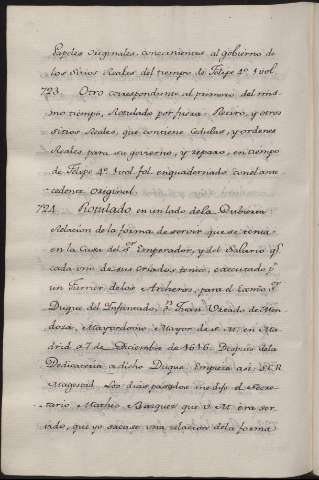 Papeles originales, concernientes al gobierno de
los Sitios Reales del tiempo de Felipe 4º. 1 vol.
723. Otro correspondiente al primero del mis
mo tiempo, Rotulado por fuera Retiro, y otros
sitios Reales, que contiene Cedulas, y ordenes
Reales para su govierno, y reparo, en tiempo
de Felipe 4º 1 vol. fol. enquadernado con el ante
cedente original.
724. Rotulado en un lado de la Cubierta
Relacion de la forma de servir que se tenia
en la Casa del Sr. Emperador, y del Salario q̃
cada uno de sus criados tenia, executado pr.
un Furrier de los Archeros, para el Excmo. Sr.
Duque del Infantado, Dn. Juan Urtado de Men
doza, Mayordomo Mayor de S. M. en Ma
drid a 7 de Diciembre de 1616. Despues de la
Dedicatoria a dicho Duque Empieza asi: S.C.R.
Magestad. Los dias pasados me dijo el Secre
tario Matheo Bazquez que V. M. era ser
vido, que yo sacase una relacion de la forma